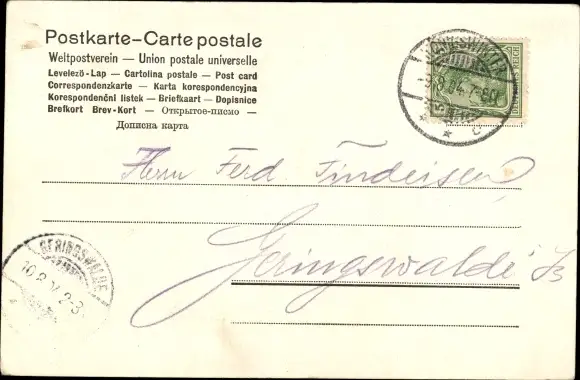 Postkarte – Carte postale
Weltpostverein — Union postale universelle
Levelezö-Lap — Cartolina postale — Post card
Correspondenzkarte — Karta korespondencyjna
Korespondenční listek — Briefkaart — Dopisnice
Brefkort Brev-Kort — Открытое-письмо —
Дописна карта
Herrn Ferd. Findeisen
Geringswalde i/S
GERINGSWALDE
10.8.04 2-3